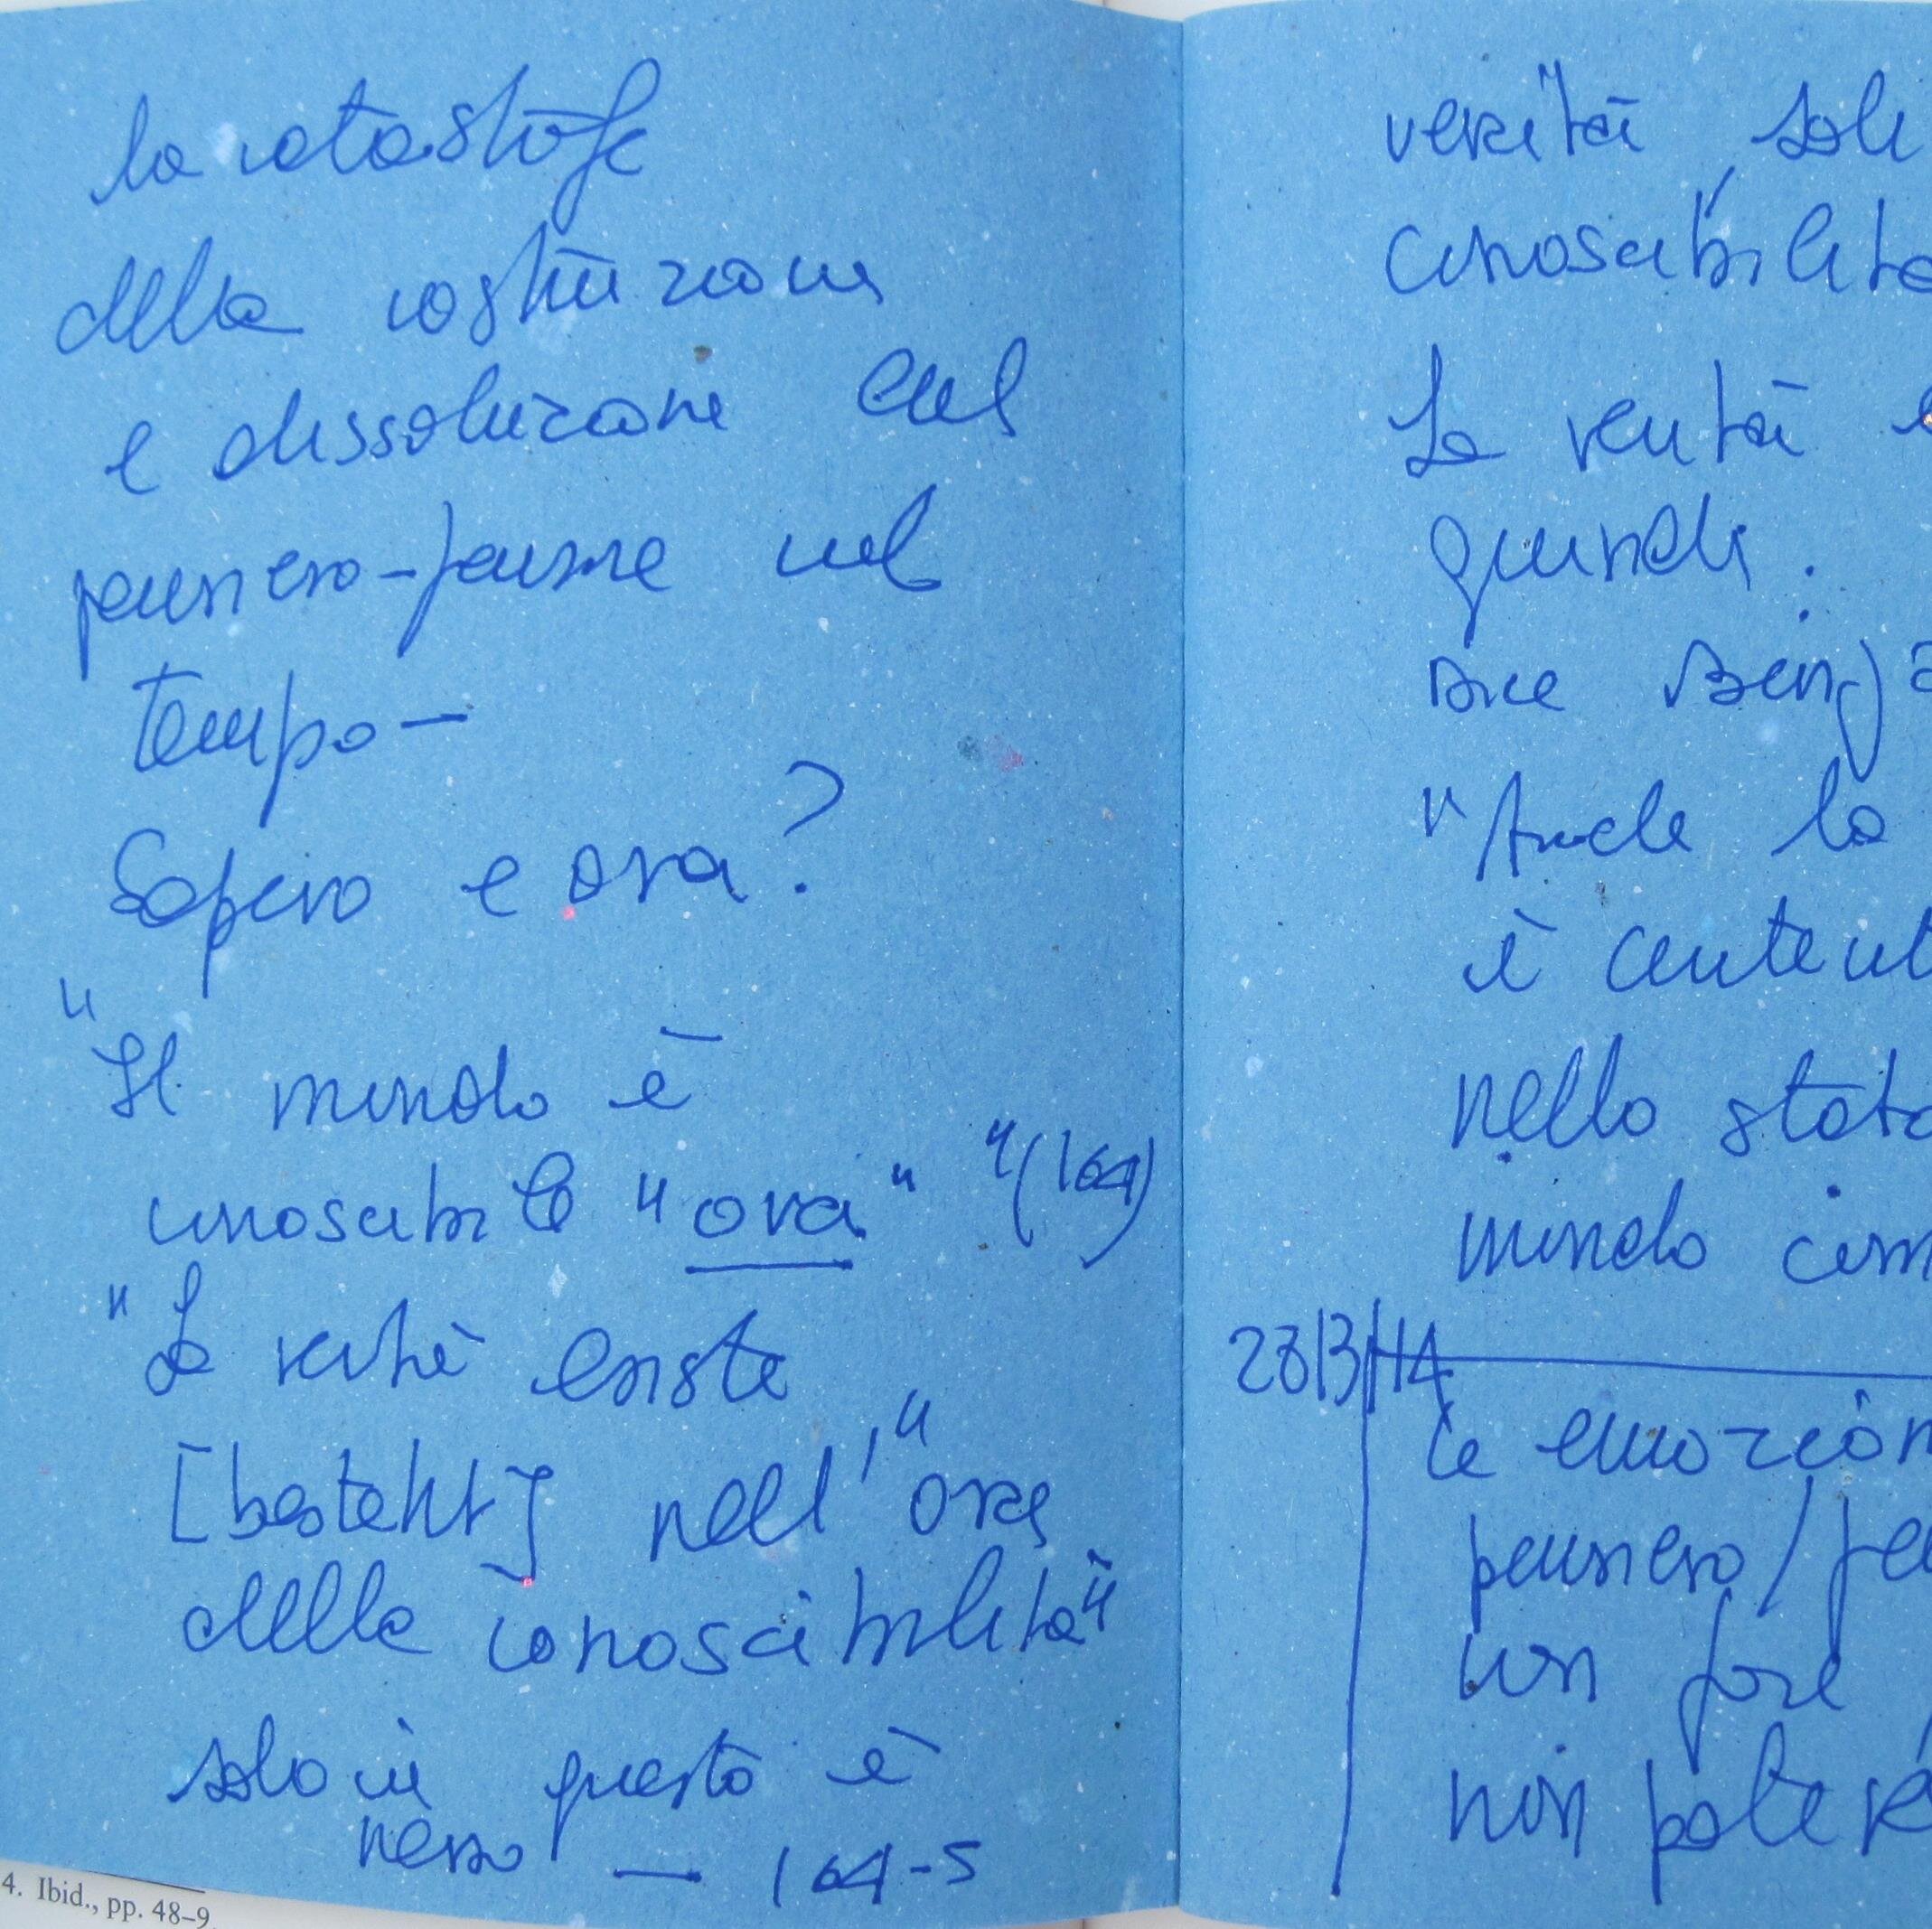 la catastrofe
della costruzione
e dissoluzione del
pensiero-forma nel
tempo —
Sapevo e ora?
"Il mondo è
conoscibile "ora" " (164)
"La verità esiste
[besteht] nell'"ora
della conoscibilità"
solo in questo è
nesso — 164-5
4. Ibid., pp. 48–9
verità, sole
conoscibilità
La verità è
quindi.
dice Benj
"Anche la
è contenut
nello stato
mondo com
28/3/14
le emozion
pensiero/fe
non fare
non potere